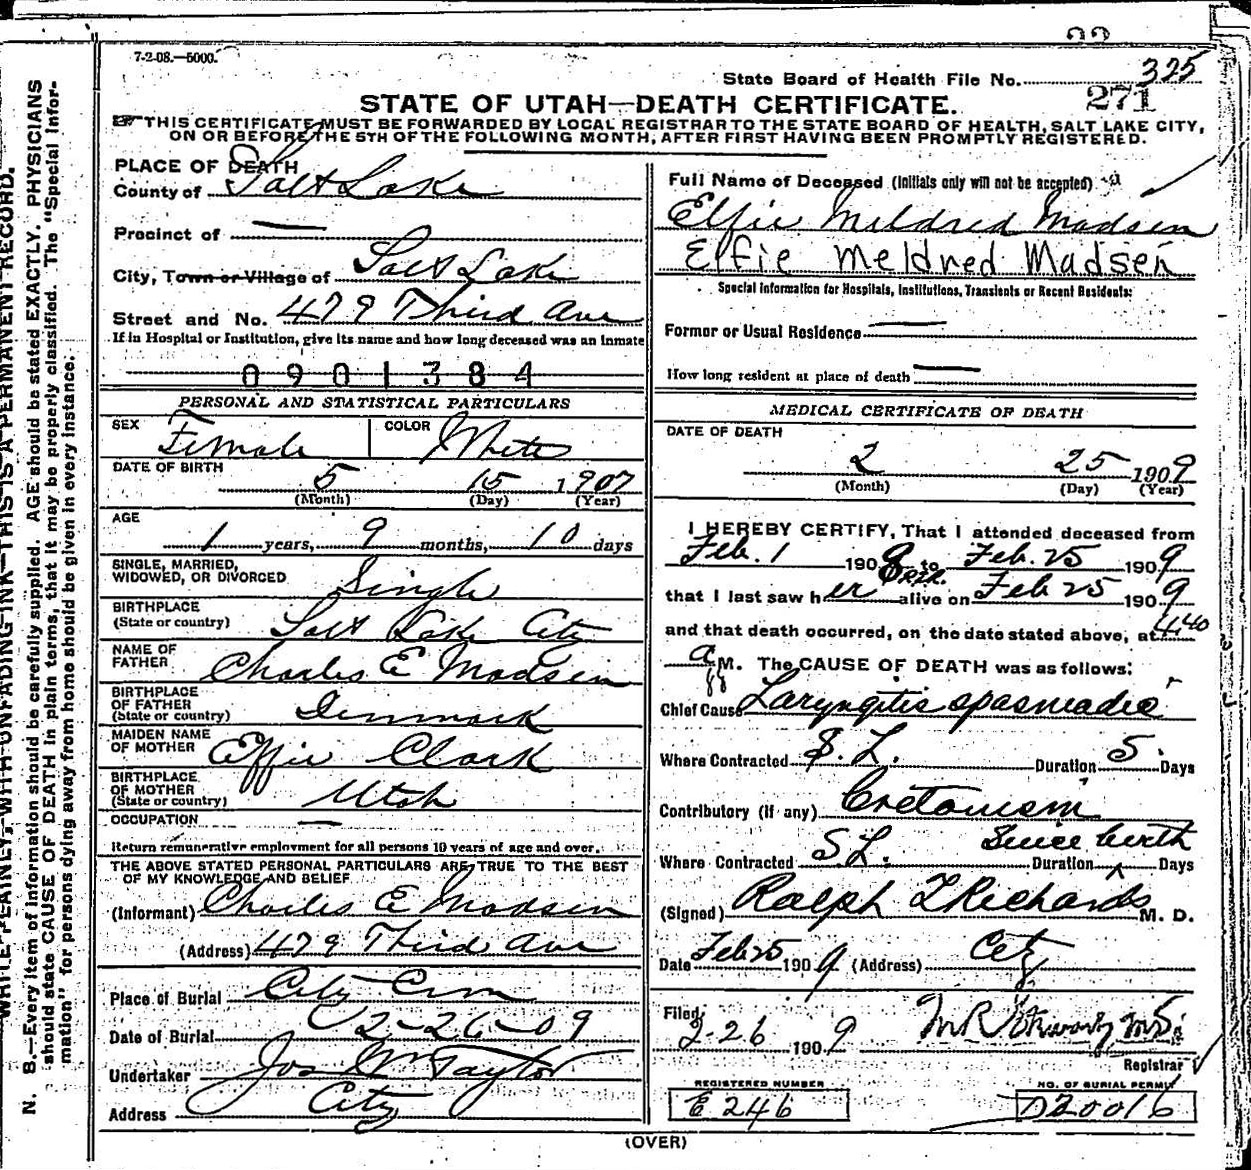 7-2-08.—5000.
State Board of Health File No. 325
271
STATE OF UTAH—DEATH CERTIFICATE.
THIS CERTIFICATE MUST BE FORWARDED BY LOCAL REGISTRAR TO THE STATE BOARD OF HEALTH, SALT LAKE CITY,
ON OR BEFORE THE 5TH OF THE FOLLOWING MONTH, AFTER FIRST HAVING BEEN PROMPTLY REGISTERED.
WRITE PLAINLY, WITH UNFADING INK—THIS IS A PERMANENT RECORD.
N. B.—Every item of information should be carefully supplied. AGE should be stated EXACTLY. PHYSICIANS
should state CAUSE OF DEATH in plain terms, that it may be properly classified. The "Special Infor-
mation" for persons dying away from home should be given in every instance.
PLACE OF DEATH
County of Salt Lake
Precinct of —
City, Town or Village of Salt Lake
Street and No. 479 Third Ave
If in Hospital or Institution, give its name and how long deceased was an inmate
0901384
PERSONAL AND STATISTICAL PARTICULARS
SEX Female COLOR White
DATE OF BIRTH 5 15 1907
(Month) (Day) (Year)
AGE
1 years, 9 months, 10 days
SINGLE, MARRIED,
WIDOWED, OR DIVORCED Single
BIRTHPLACE
(State or country) Salt Lake City
NAME OF
FATHER Charles E Madsen
BIRTHPLACE
OF FATHER
(State or country) Denmark
MAIDEN NAME
OF MOTHER Effie Clark
BIRTHPLACE
OF MOTHER
(State or country) Utah
OCCUPATION —
Return remunerative employment for all persons 10 years of age and over.
THE ABOVE STATED PERSONAL PARTICULARS ARE TRUE TO THE BEST
OF MY KNOWLEDGE AND BELIEF
(Informant) Charles E Madsen
(Address) 479 Third Ave
Place of Burial City Cem
Date of Burial 2-26-09
Undertaker Jos Wm Taylor
Address City
Full Name of Deceased (Initials only will not be accepted)
Elfie Meldred Madsen
Elfie Meldred Madsen
Special Information for Hospitals, Institutions, Transients or Recent Residents:
Former or Usual Residence —
How long resident at place of death —
MEDICAL CERTIFICATE OF DEATH
DATE OF DEATH
2 25 1909
(Month) (Day) (Year)
I HEREBY CERTIFY, That I attended deceased from
Feb. 1 1908 to Feb. 25 1909
that I last saw her alive on Feb 25 1909
and that death occurred, on the date stated above, at 4:40
a M. The CAUSE OF DEATH was as follows:
Chief Cause Laryngitis spasmadic
Where Contracted S. L. Duration 5 Days
Contributory (if any) Cretanism
Since birth
Where Contracted S L. Duration Days
(Signed) Ralph T Richards M. D.
Date Feb 25 1909 (Address) City
Filed
2-26 1909
Registrar
REGISTERED NUMBER
E 246
NO. OF BURIAL PERMIT
D20016
(OVER)